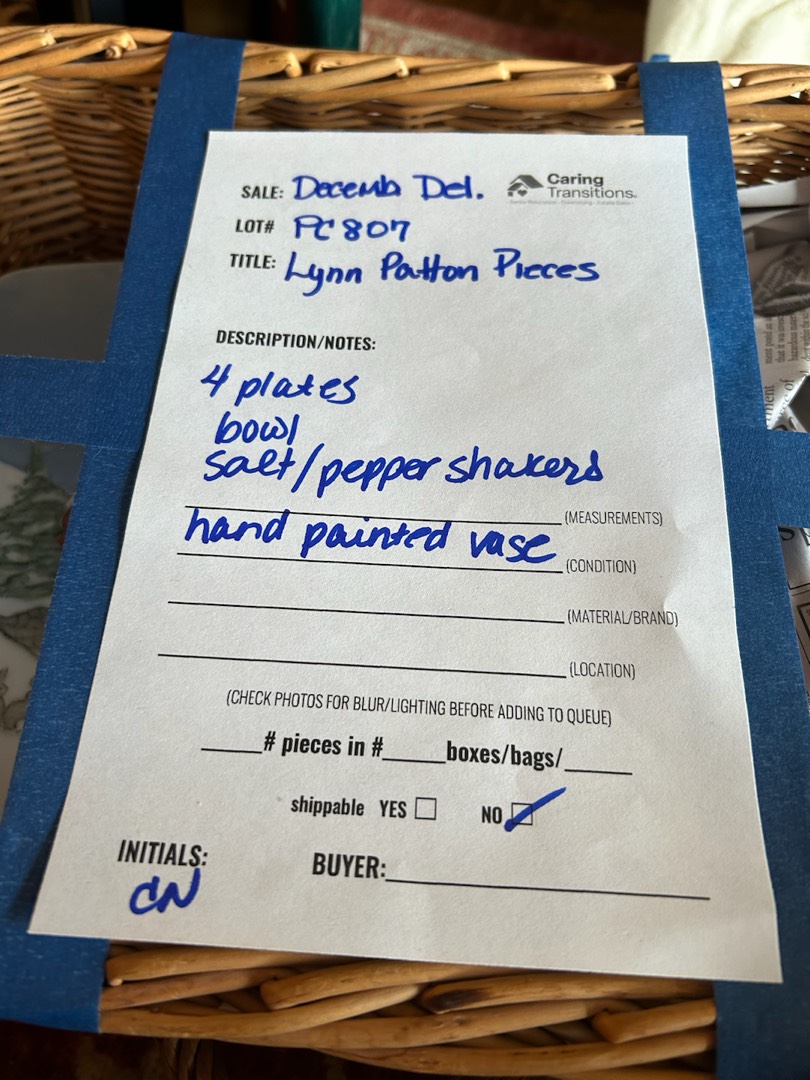 SALE: Decemb Del.
Caring Transitions
LOT# PC807
TITLE: Lynn Patton Pieces
DESCRIPTION/NOTES:
4 plates
bowl
salt/pepper shakers
(MEASUREMENTS)
hand painted vase
(CONDITION)
(MATERIAL/BRAND)
(LOCATION)
(CHECK PHOTOS FOR BLUR/LIGHTING BEFORE ADDING TO QUEUE)
# pieces in # boxes/bags/
shippable YES NO
INITIALS: CN
BUYER: